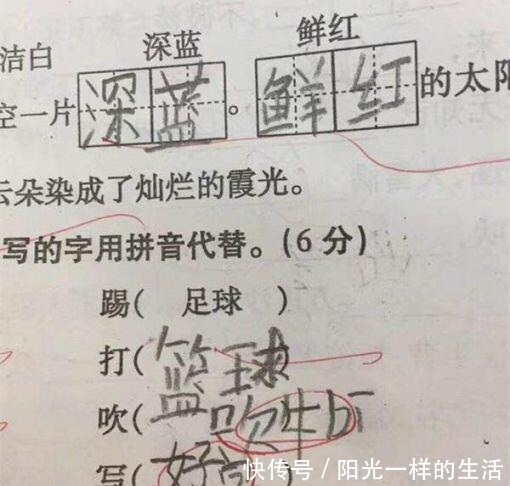 洁白 深蓝 鲜红
空一片深蓝。鲜红的太阳
云朵染成了灿烂的霞光。
写的字用拼音代替。(6分)
踢( 足球 )
打(篮球
吹(吹牛bī
写(好
快传号/阳光一样的生活